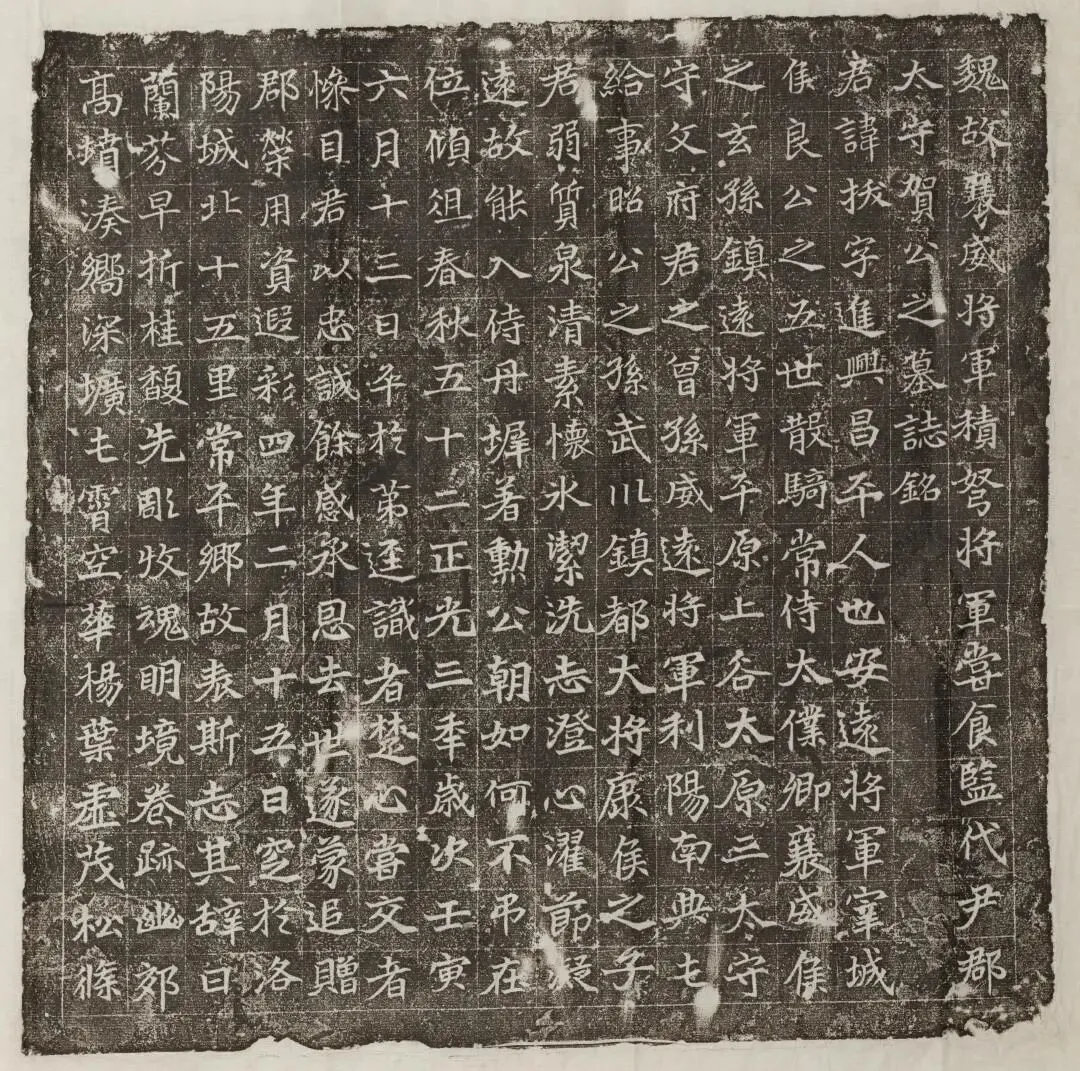 魏故襄威將軍積弩將軍嘗食監代尹郡
太守賀公之墓誌銘
君諱拔字進興昌平人也安遠將軍寧城
侯良公之五世散騎常侍太僕卿襄威侯
之玄孫鎮遠將軍平原上谷太原三太守
守文府君之曾孫威遠將軍利陽南典屯
給事昭公之孫武川鎮都大將康侯之子
君弱質泉清素懷氷潔洗志澄心濯節凝
遠故能入侍丹墀著勳公朝如何不弔在
位傾徂春秋五十二正光三年歲次壬寅
六月十三日卒於第逕識者楚心嘗交者
慘目君以忠誠餘感承恩去世遂蒙追贈
郡榮用資遐彩四年二月十五日窆於洛
陽城北十五里常平鄉故表斯志其辞曰
蘭芬早折桂馥先彫牧魂明境卷跡幽郊
髙墳湊嚮深壙乇霄空華楊葉虛茂松絛